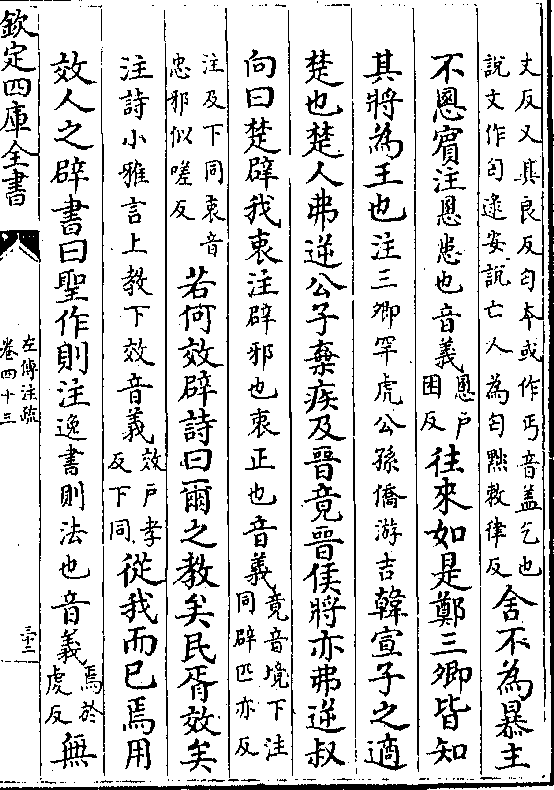 丈反又其良反匄本或作丐音蓋乞也
說文作匄逯安說亡人為匄㸃救律反
舍不為暴主
不慁賓注慁患也音義
慁戶
困反
往來如是鄭三卿皆知
其將為王也注三卿罕虎公孫僑游吉韓宣子之適
楚也楚人弗逆公子棄疾及晉竟晉侯將亦弗逆叔
向曰楚辟我衷注辟邪也衷正也音義
竟音境下注
同辟匹亦反
注及下同衷音
忠邪似嗟反
若何效辟詩曰爾之教矣民胥效矣
注詩小雅言上教下效音義
效戶孝
反下同
從我而已焉用
效人之辟書曰聖作則注逸書則法也音義
焉於
虔反
無
欽定四庫全書
左傳注疏
卷四十三
三十二